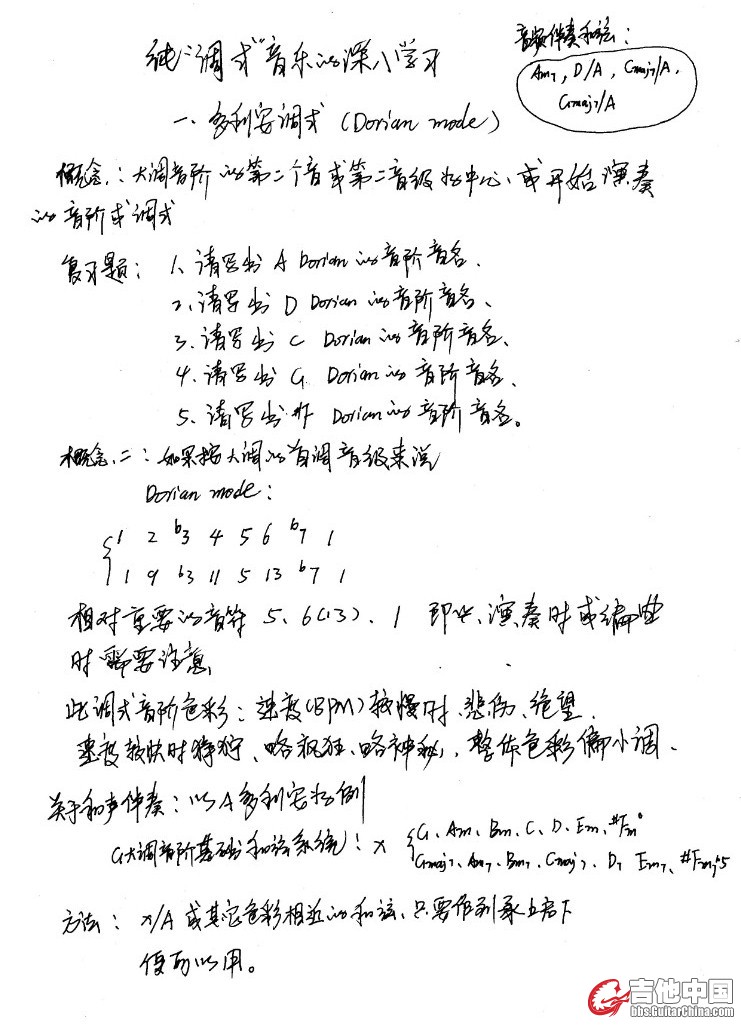 纯"调式"音乐的深入学习
音频伴奏和弦：
Am7, D/A, Cmaj7/A,
Gmaj7/A
一、多利安调式 (Dorian mode)
概念一：大调音阶的第二个音或第二音级为中心、或开始演奏
的音阶或调式
复习题： 1、请写出 A Dorian的音阶音名、
2、请写出 D Dorian的音阶音名、
3、请写出 C Dorian的音阶音名、
4、请写出 G Dorian的音阶音名、
5、请写出 #F Dorian的音阶音名。
概念二：如果按大调的自调音级来说
Dorian mode:
1 2 b3 4 5 6 b7 1
1 9 b3 11 5 13 b7 1
相对重要的音符 5、6(13)、1 即此、演奏时或编曲
时需要注意、
此调式音阶色彩：速度(BPM)较慢时、悲伤、绝望、
速度较快时狰狞、略疯狂、略神秘、整体色彩偏小调、
关于和声伴奏：以A多利安为例
G大调音阶基础和弦系统：x { G、Am、Bm、C、D、Em、#Fm°
Gmaj7、Am7、Bm7、Cmaj7、D7 Em7、#Fm7b5
方法： x/A 或其它色彩相近的和弦、只要作到承上启下
便可以用。
吉他中国
bbs.GuitarChina.com